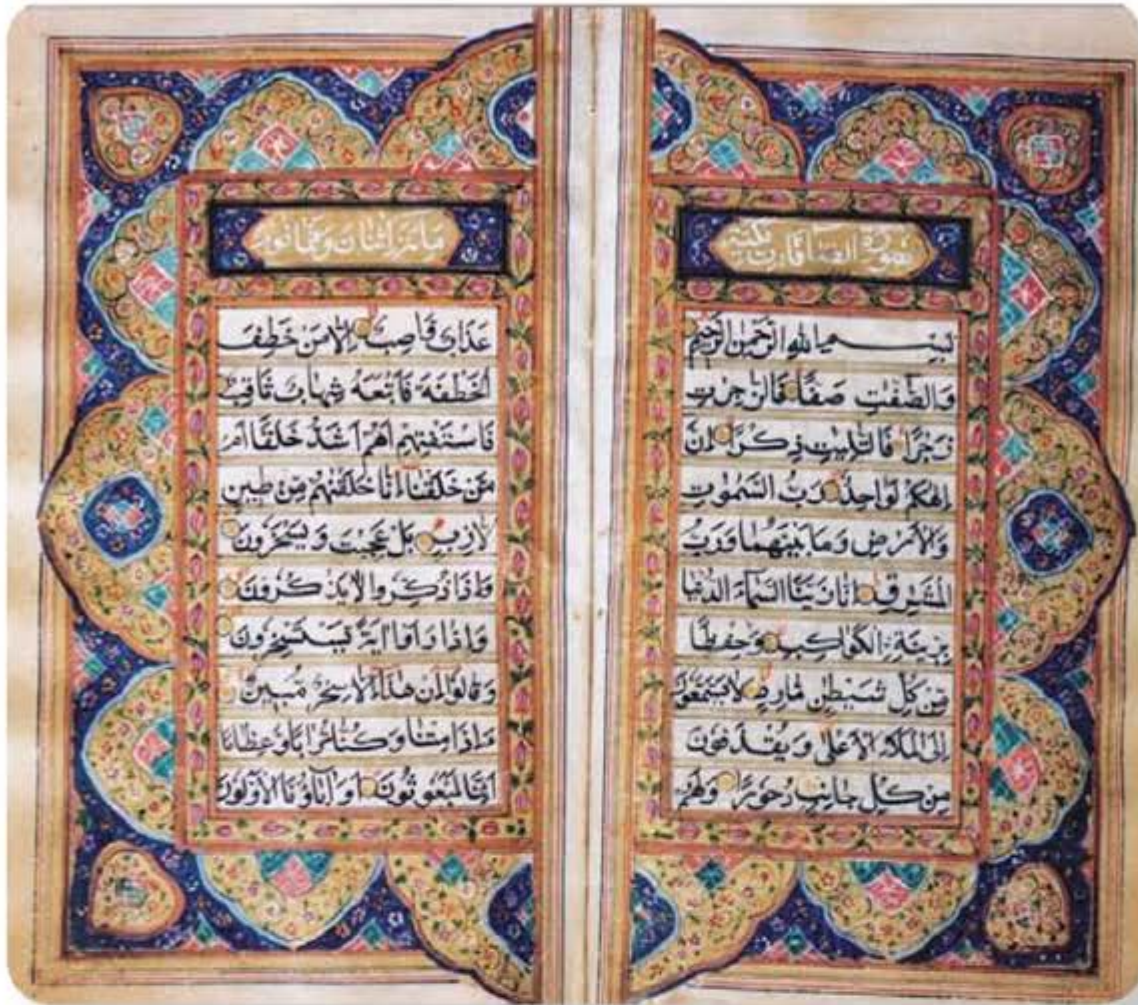 سورة الصافات مكية
بسم الله الرحمن الرحيم
وَالصّٰفّٰتِ صَفًّا فَالزّٰجِرٰتِ
زَجْرًا فَالتّٰلِيٰتِ ذِكْرًا اِنَّ
اِلٰهَكُمْ لَوَاحِدٌ رَبُّ السَّمٰوٰتِ
وَالْاَرْضِ وَمَا بَيْنَهُمَا وَرَبُّ
الْمَشَارِقِ اِنَّا زَيَّنَّا السَّمَآءَ الدُّنْيَا
بِزِينَةِ ِالْكَوَاكِبِ وَحِفْظًا
مِّنْ كُلِّ شَيْطٰنٍ مَّارِدٍ لَا يَسَّمَّعُوْنَ
اِلَى الْمَلَاِ الْاَعْلٰى وَيُقْذَفُوْنَ
مِنْ كُلِّ جَانِبٍ دُحُوْرًا وَلَهُمْ
اثنان وثمانون
عَذَابٌ وَّاصِبٌ اِلَّا مَنْ خَطِفَ
الْخَطْفَةَ فَاَتْبَعَهُ شِهَابٌ ثَاقِبٌ
فَاسْتَفْتِهِمْ اَهُمْ اَشَدُّ خَلْقًا اَمْ
مَّنْ خَلَقْنَا اِنَّا خَلَقْنٰهُمْ مِّنْ طِيْنٍ
لَازِبٍ بَلْ عَجِبْتَ وَيَسْخَرُوْنَ
وَاِذَا ذُكِّرُوا لَا يَذْكُرُوْنَ
وَاِذَا رَاَوْا اٰيَةً يَسْتَسْخِرُوْنَ
وَقَالُوْا اِنْ هٰذَا اِلَّا سِحْرٌ مُّبِيْنٌ
ءَاِذَا مِتْنَا وَكُنَّا تُرَابًا وَّعِظَامًا
اَئِنَّا لَمَبْعُوْثُوْنَ اَوَاٰبَاؤُنَا الْاَوَّلُوْنَ